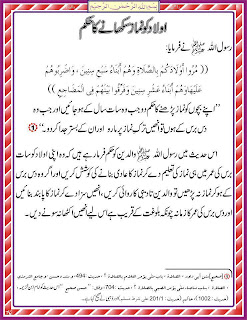 بسم اللہ الرحمٰن الرحیم
اولاد کو نماز سکھانے کا حکم
رسول اللہ ﷺ نے فرمایا:
(( مُرُوا أَوْلَادَكُمْ بِالصَّلَاةِ وَهُمْ أَبْنَاءُ سَبْعِ سِنِينَ ، وَاضْرِبُوهُمْ
عَلَيْهَا وَهُمْ أَبْنَاءُ عَشْرِ سِنِينَ وَفَرِّقُوا بَيْنَهُمْ فِي الْمَضَاجِعِ ))
"اپنے بچوں کو نماز پڑھنے کا حکم دو جب وہ سات سال کے ہو جائیں اور جب وہ
دس برس کے ہوں تو انھیں ترکِ نماز پر مارو اور ان کے بستر جدا کر دو۔"
اس حدیث میں رسول اللہ ﷺ والدین کو حکم فرما رہے ہیں کہ وہ اپنی اولاد کو سات
برس کی عمر میں ہی نماز کی تعلیم دے کر نماز کا عادی بنانے کی کوشش کریں اور اگر وہ دس برس
کے ہو کر نماز نہ پڑھیں تو والدین تادیبی کارروائی کریں، انھیں سزا دے کر نماز کا پابند بنائیں
اور دس برس کی عمر کا زمانہ چونکہ بلوغت کے قریب ہے اس لیے انھیں اکٹھا نہ سونے دیں۔
الصلاة، باب متى يؤمر الغلام بالصلاة؟ حديث: 494